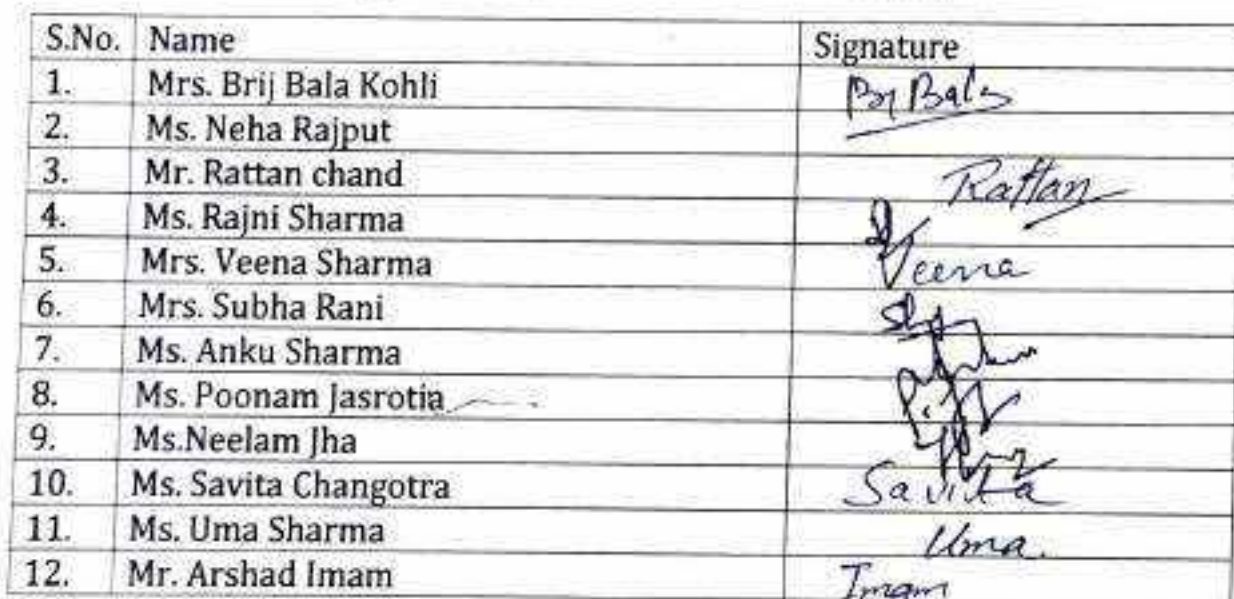 S.No. Name Signature
1. Mrs. Brij Bala Kohli Bala
2. Ms. Neha Rajput
3. Mr. Rattan chand Rattan
4. Ms. Rajni Sharma
5. Mrs. Veena Sharma Veena
6. Mrs. Subha Rani
7. Ms. Anku Sharma
8. Ms. Poonam Jasrotia
9. Ms.Neelam Jha
10. Ms. Savita Changotra Savita
11. Ms. Uma Sharma Uma.
12. Mr. Arshad Imam Imam